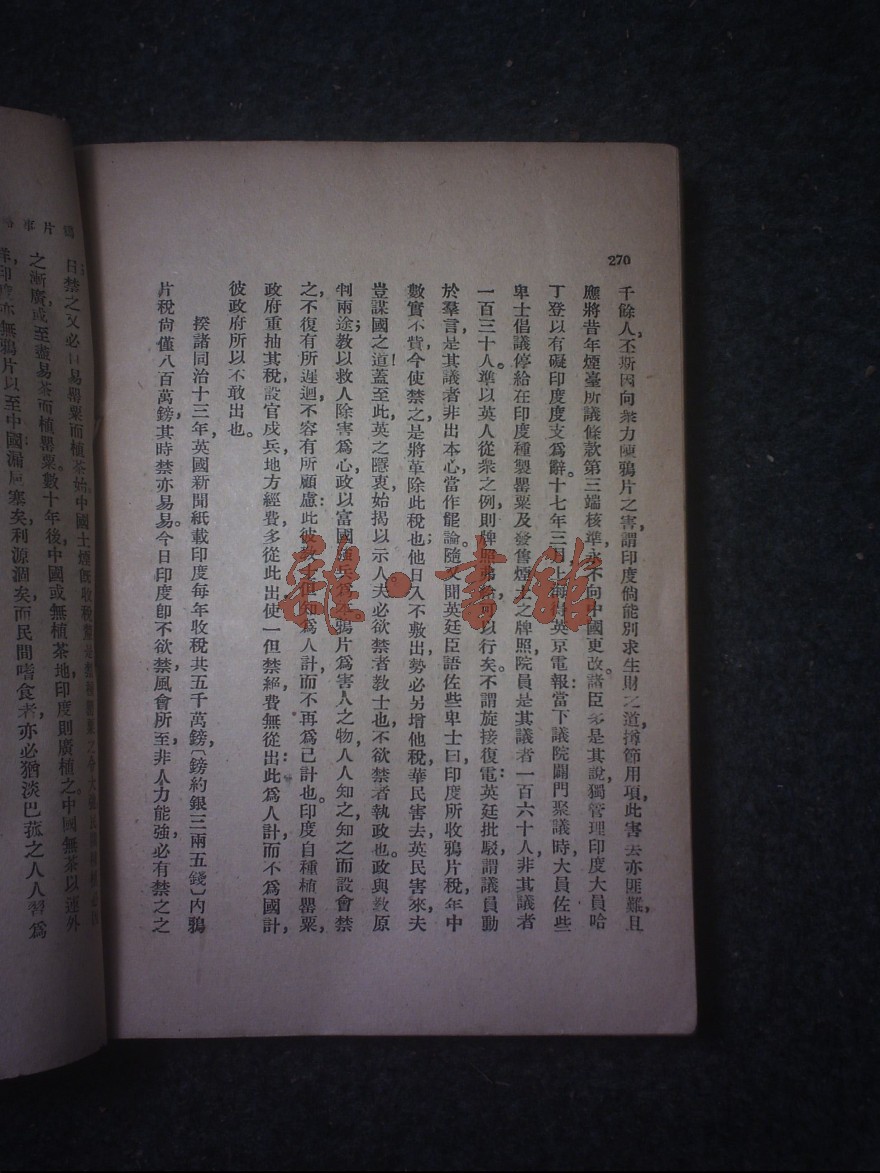 270
千餘人，丕斯因向衆力陳鴉片之害，謂印度倘能別求生財之道，撙節用項，此害去亦匪難，且
應將昔年煙臺所議條款第三端核準，永不向中國更改。諸臣多是其說，獨管理印度大員哈
丁登以有礙印度度支爲辭。十七年三月，上海得英京電報：當下議院闢門聚議時，大員佐些
卑士倡議停給在印度種製罌粟及發售煙土之牌照，院員是其議者一百六十人，非其議者
一百三十人。準以英人從衆之例，則牌照弗給可以行矣。不謂旋接復電，英廷批駁，謂議員動
於羣言，是其議者非出本心，當作罷論。隨又聞英廷臣語佐些卑士曰：印度所收鴉片稅，年中
數實不貲，今使禁之，是將革除此稅也；他日入不敷出，勢必另增他稅，華民害去，英民害來，夫
豈謀國之道！蓋至此英之隱衷始揭以示人。夫必欲禁者教士也，不欲禁者執政也。政與教原
判兩途；教以救人除害爲心，政以富國強兵爲
鴉片爲害人之物，人人知之，知之而設會禁
之，不復有所遲迴，不容有所顧慮：此彼教士但知爲人計，而不再爲己計也。印度自種植罌粟，
政府重抽其稅，設官戍兵，地方經費多從此出，使一但禁絕，費無從出：此爲人計而不爲國計，
彼政府所以不敢出也。
揆諸同治十三年，英國新聞紙載印度每年收稅共五千萬鎊，（鎊約銀三兩五錢）內鴉
片稅尙僅八百萬鎊，其時禁亦易易。今日印度卽不欲禁，風會所至，非人力能強，必有禁之之
片事
日禁之又必
易罌粟而植茶始。中國土煙旣收稅
之漸廣，或至盡易茶而植罌粟。數十年後，中國或無植茶地，印度則廣植之。中國無茶以運外
洋，印度亦無鴉片以至中國，漏卮塞矣，利源涸矣，而民間嗜食者，亦必猶淡巴菰之人人習爲